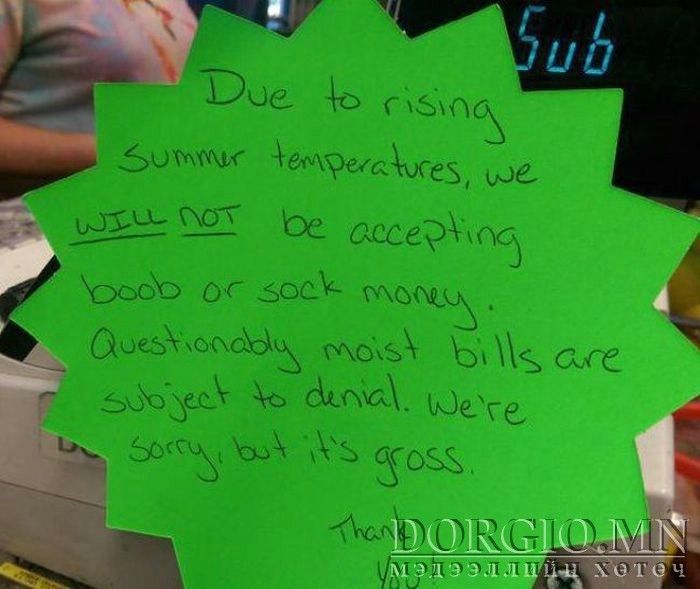 Sub
Due to rising
summer temperatures, we
WILL NOT be accepting
boob or sock money.
Questionably moist bills are
subject to denial. We're
sorry, but it's gross.
Thank
you!
DORGIO.MN
МЭДЭЭЛЛИЙН ХӨТӨЧ